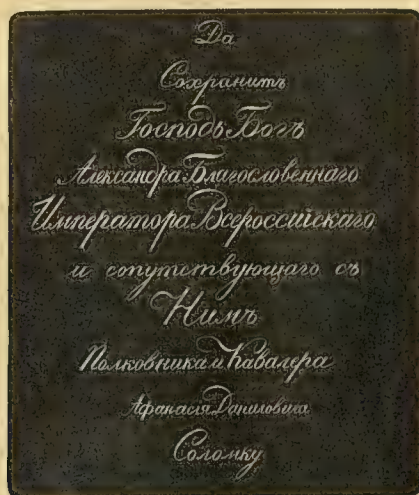 Да
Сохранитъ
Господь Богъ
Александра Благословеннаго
Императора Всероссійскаго
и сопутствующаго съ
Нимъ
Полковника и Кавалера
Афанасія Даниловича
Соломку